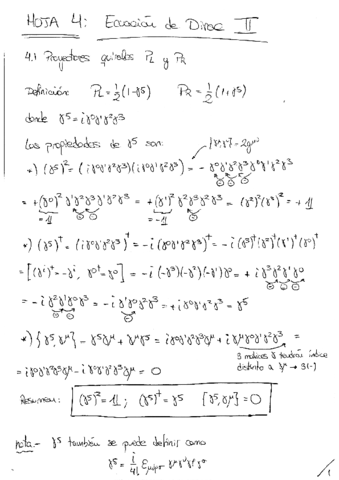 HOJA 4: Ecuación de Dirac II
4.1 Proyectores quirales PL y PR
Definición PL = 1/2 (1-γ5) PR = 1/2 (1+γ5)
donde γ5 = iγ0γ1γ2γ3
Las propiedades de γ5 son:
*) (γ5)² = (iγ0γ1γ2γ3)(iγ0γ1γ2γ3) = -γ0γ1γ2γ3γ0γ1γ2γ3
= +(γ0)² γ1γ2γ3γ1γ2γ3 = +(γ1)² γ2γ3γ2γ3 = -(γ2)²(γ3)² = +1
*) (γ5)† = (iγ0γ1γ2γ3)† = -i(γ0γ1γ2γ3)† = -i(γ3)†(γ2)†(γ1)†(γ0)†
= [(γi)† = -γi, γ0† = γ0] = -i(-γ3)(-γ2)(-γ1)γ0 = +iγ3γ2γ1γ0
= -iγ2γ1γ0γ3 = -iγ1γ0γ2γ3 = +iγ0γ1γ2γ3 = γ5
*) {γ5,γμ} = γ5γμ + γμγ5 = iγ0γ1γ2γ3γμ + iγμγ0γ1γ2γ3 =
3 matrices γ tendrán índice
distinto a γμ → 3(-)
= iγ0γ1γ2γ3γμ - iγ0γ1γ2γ3γμ = 0
Resumen: (γ5)² = 1; (γ5)† = γ5 {γ5,γμ} = 0
nota.- γ5 también se puede definir como
γ5 = i/4! εμνρσ γμγνγργσ
1